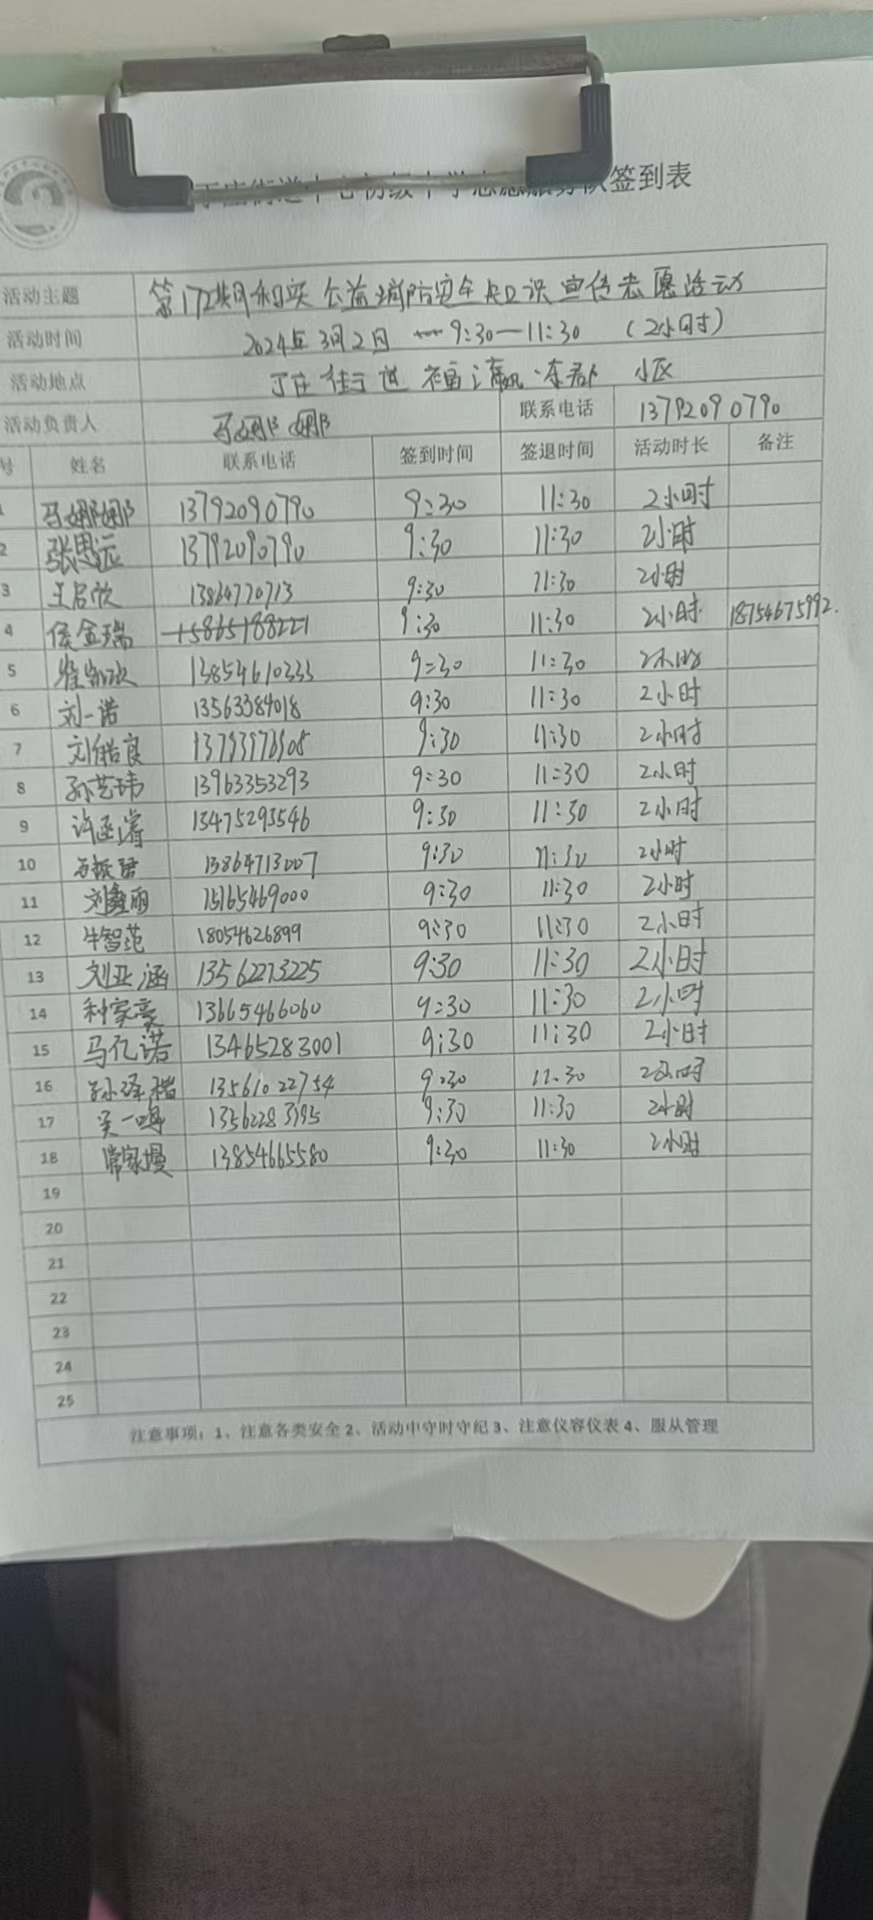 丁庄街道中心初级中学志愿服务队签到表
活动主题 第172期利琪公益消防安全知识宣传志愿活动
活动时间 2024年3月2日 9:30—11:30 (2小时)
活动地点 丁庄街道福瀛·东郡 小区
活动负责人 马娜娜 联系电话 13792090790
号 姓名 联系电话 签到时间 签退时间 活动时长 备注
1 马娜娜 13792090790 9:30 11:30 2小时
2 张思远 13792090790 9:30 11:30 2小时
3 王启欣 13864770713 9:30 11:30 2小时
4 侯金瑞 15865188221 9:30 11:30 2小时 18754675992.
5 13854610333 9:30 11:30 2小时
6 刘一诺 13563384018 9:30 11:30 2小时
7 刘皓良 9:30 11:30 2小时
8 孙艺玮 13963353293 9:30 11:30 2小时
9 许函睿 13475293546 9:30 11:30 2小时
10 13864713007 9:30 11:30 2小时
11 刘鑫丽 15165469000 9:30 11:30 2小时
12 牛智范 18054626899 9:30 11:30 2小时
13 刘亚涵 13562273225 9:30 11:30 2小时
14 种家豪 13665466060 9:30 11:30 2小时
15 马亿诺 13465283001 9:30 11:30 2小时
16 孙泽楷 13561022754 9:30 11:30 2小时
17 吴一鸣 9:30 11:30 2小时
18 常家嫚 13854665580 9:30 11:30 2小时
19
20
21
22
23
24
25
注意事项：1、注意各类安全 2、活动中守时守纪 3、注意仪容仪表 4、服从管理